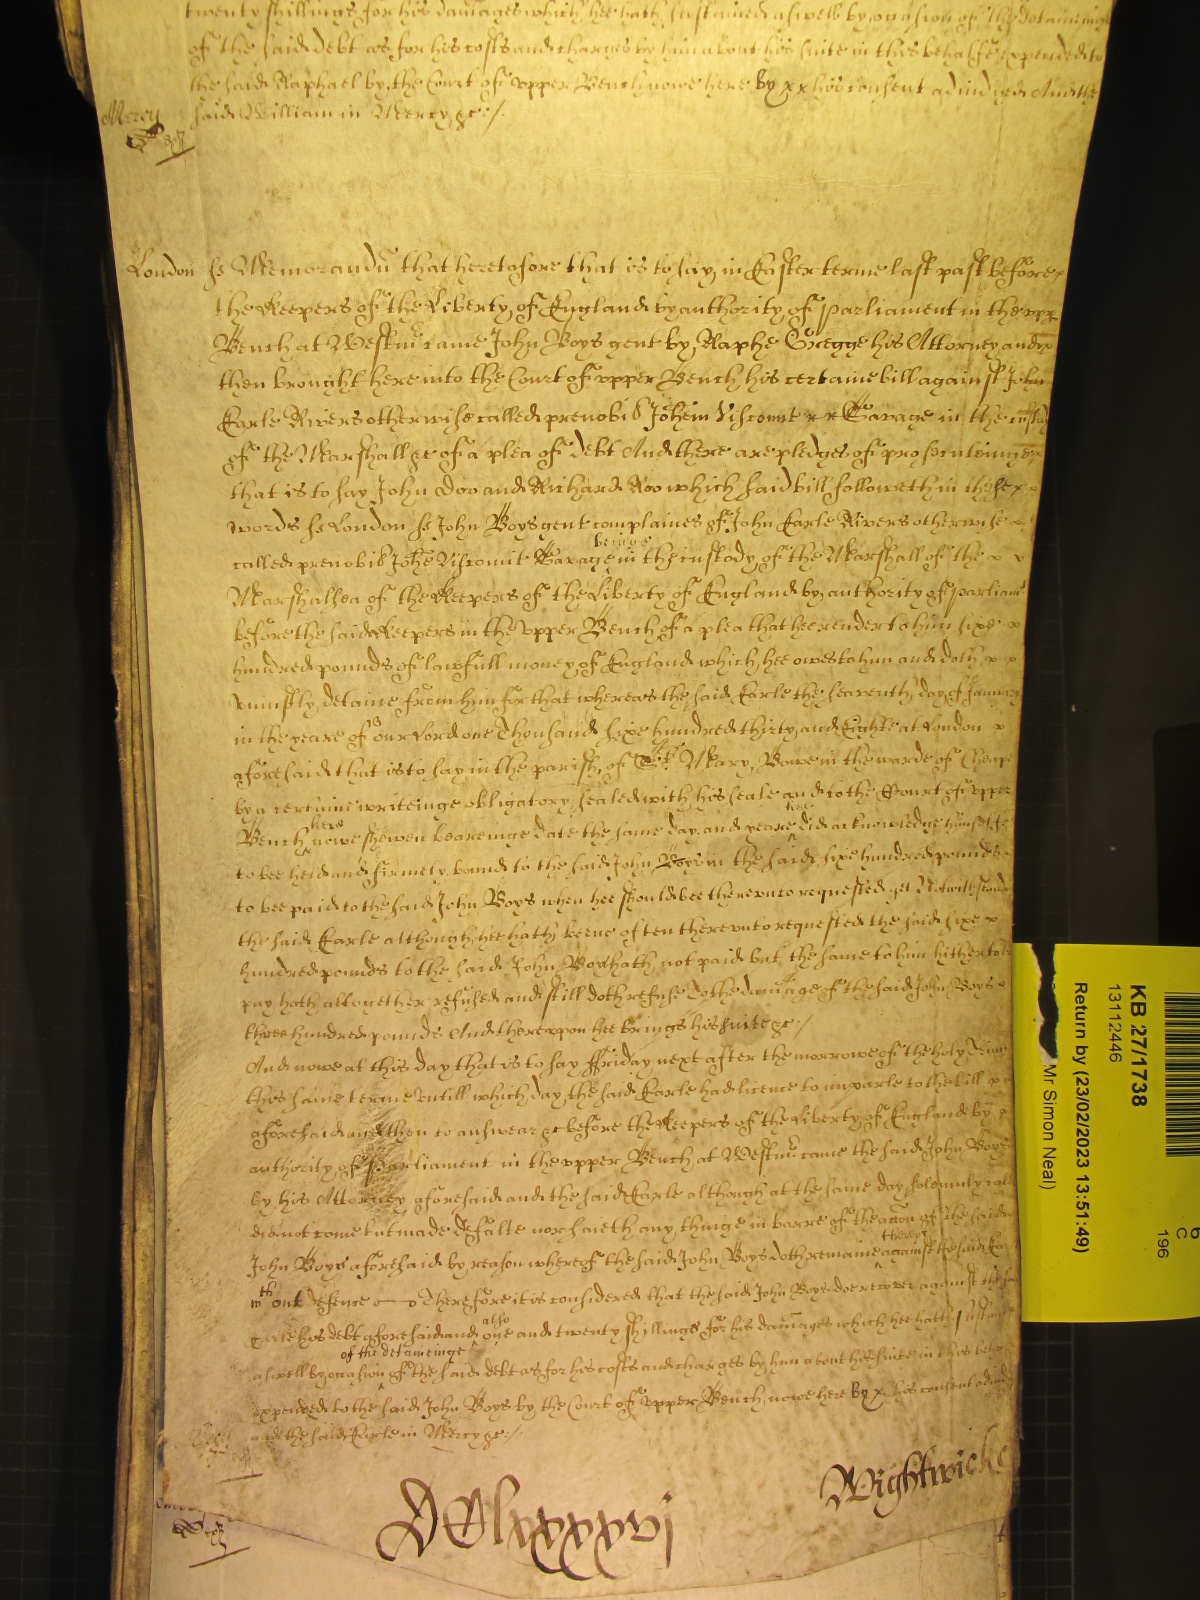 twenty shillings for his damages which hee hath susteined aswell by occasion of the detaineinge
of the said debt as for his costs and charges by him about his suite in this behalfe expended to
the said Raphael by the Court of upper Bench nowe here by x x his consent adiudged And the
Mercy said William in Mercy &c /.
London ss Memorandu that heretofore that is to say in Easter terme last past before
the Keepers of the Liberty of England by authority of parliament in the upp
Bench at Westmr came John Boys gent by Raphe Gregge his Attorney and x
then brought here into the Court of upper Bench his certaine bill against John
Earle Rivers otherwise called prenobil Johem Viscomit x x Savage in the custod
of the Marshall &c of a plea of debt And there are pledges of prosecuteinge
that is to say John Doo and Richard Roo which said bill followeth in these x
words ss London ss John Boys gent complaines of John Earle Rivers otherwise
called prenobil Johem Viscomit Savage being in the custody of the Marshall of the x x
Marshalsea of the Keepers of the Liberty of England by authority of parliam
before the said Keepers in the upper Bench of a plea that hee render to him sixe x
hundred pounds of lawfull money of England which hee owes to him and doth x x
uniustly detaine from him for that whereas the said Earle the seaventh day of January
in the yeare of our Lord one Thousand sixe hundred thirty and Eighte at London x
aforesaid that is to say in the parish of St Mary Bowe in the warde of Cheape
by a certaine writeinge obligatory sealed with his seale and to the Court of upper
Bench here nowe shewen beareinge date the same day and yeare did acknowledge himselfe
to bee held and firmely bound to the said John Boys in the said sixe hundred pounds
to bee paid to the said John Boys when hee should bee thereunto requested yet Notwithstand
the said Earle although hee hath beene often thereunto requested the said sixe x
hundred pounds to the said John Boys hath not paid but the same to him hitherto to
pay hath altogether refused and still doth refuse To the damage of the said John Boys
three hundred pounds And thereupon hee brings his suite &c /
And nowe at this day that is to say ffriday next after the morrowe of the holy
this same terme Untill which day the said Earle had licence to imparle to the bill
aforesaid and then to answear &c before the Keepers of the Liberty of England by
authority of Parliament in the upper Bench at Westmr came the said John Boys
by his Attorney aforesaid and the said Earle although at the same day solemnly
did not come but made defalte nor saieth any thinge in barre of the accon of the said
John Boys aforesaid by reason whereof the said John Boys doth remaine therein against the said
wth out defence Therefore it is considered that the said John Boys doe recover against the
Earle his debt aforesaid and also one and twenty shillings for his damages which hee hath
aswell by occasion of the detaineinge of the said debt as for his costs and charges by him about his suite in this
expended to the said John Boys by the Court of upper Bench nowe here by x his consent
and the said Earle in Mercy &c /.
Wightwicke
DClxxxxvj
KB 27/1738
13112446
Return by (23/02/2023 13:51:49)
Mr Simon Neal)
C
196